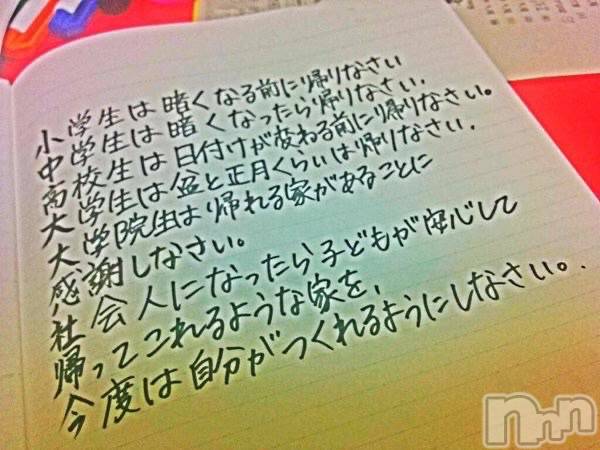 小学生は暗くなる前に帰りなさい
中学生は暗くなったら帰りなさい.
高校生は日付けが変わる前に帰りなさい。
大学生は盆と正月くらいは帰りなさい.
大学院生は帰れる家があることに
感謝しなさい。
社会人になったら子どもが安心して
帰ってこれるような家を,
今度は自分がつくれるようにしなさい。.
nnn